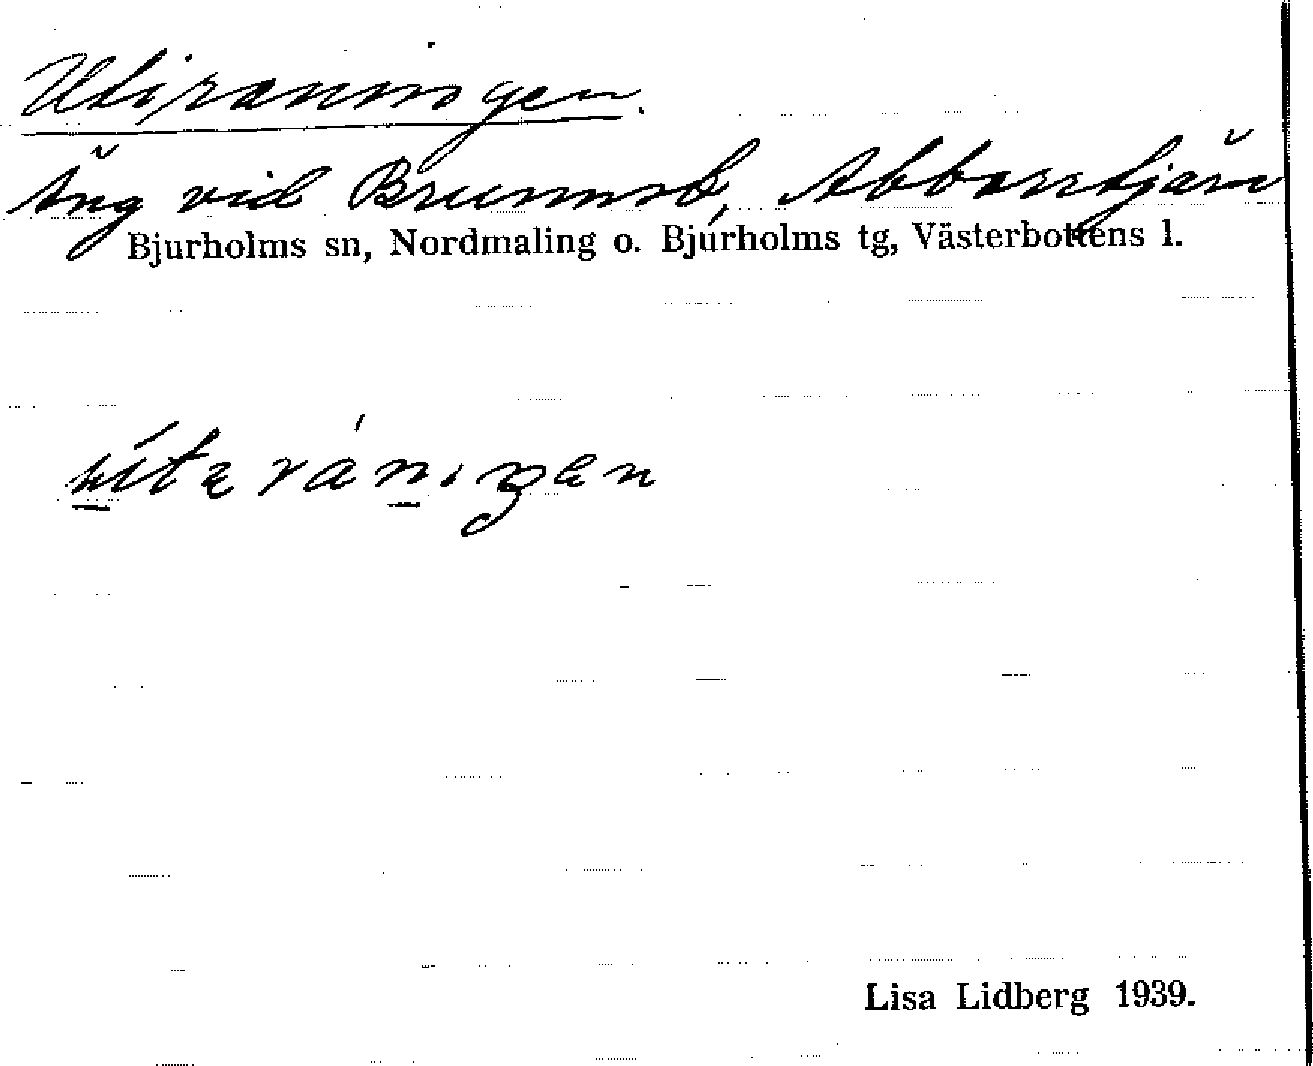 Utiraningen.
Äng vid Brunnsb, Abborrtjärn
Bjurholms sn, Nordmaling o. Bjurholms tg, Västerbottens l.
Lisa Lidberg 1939.